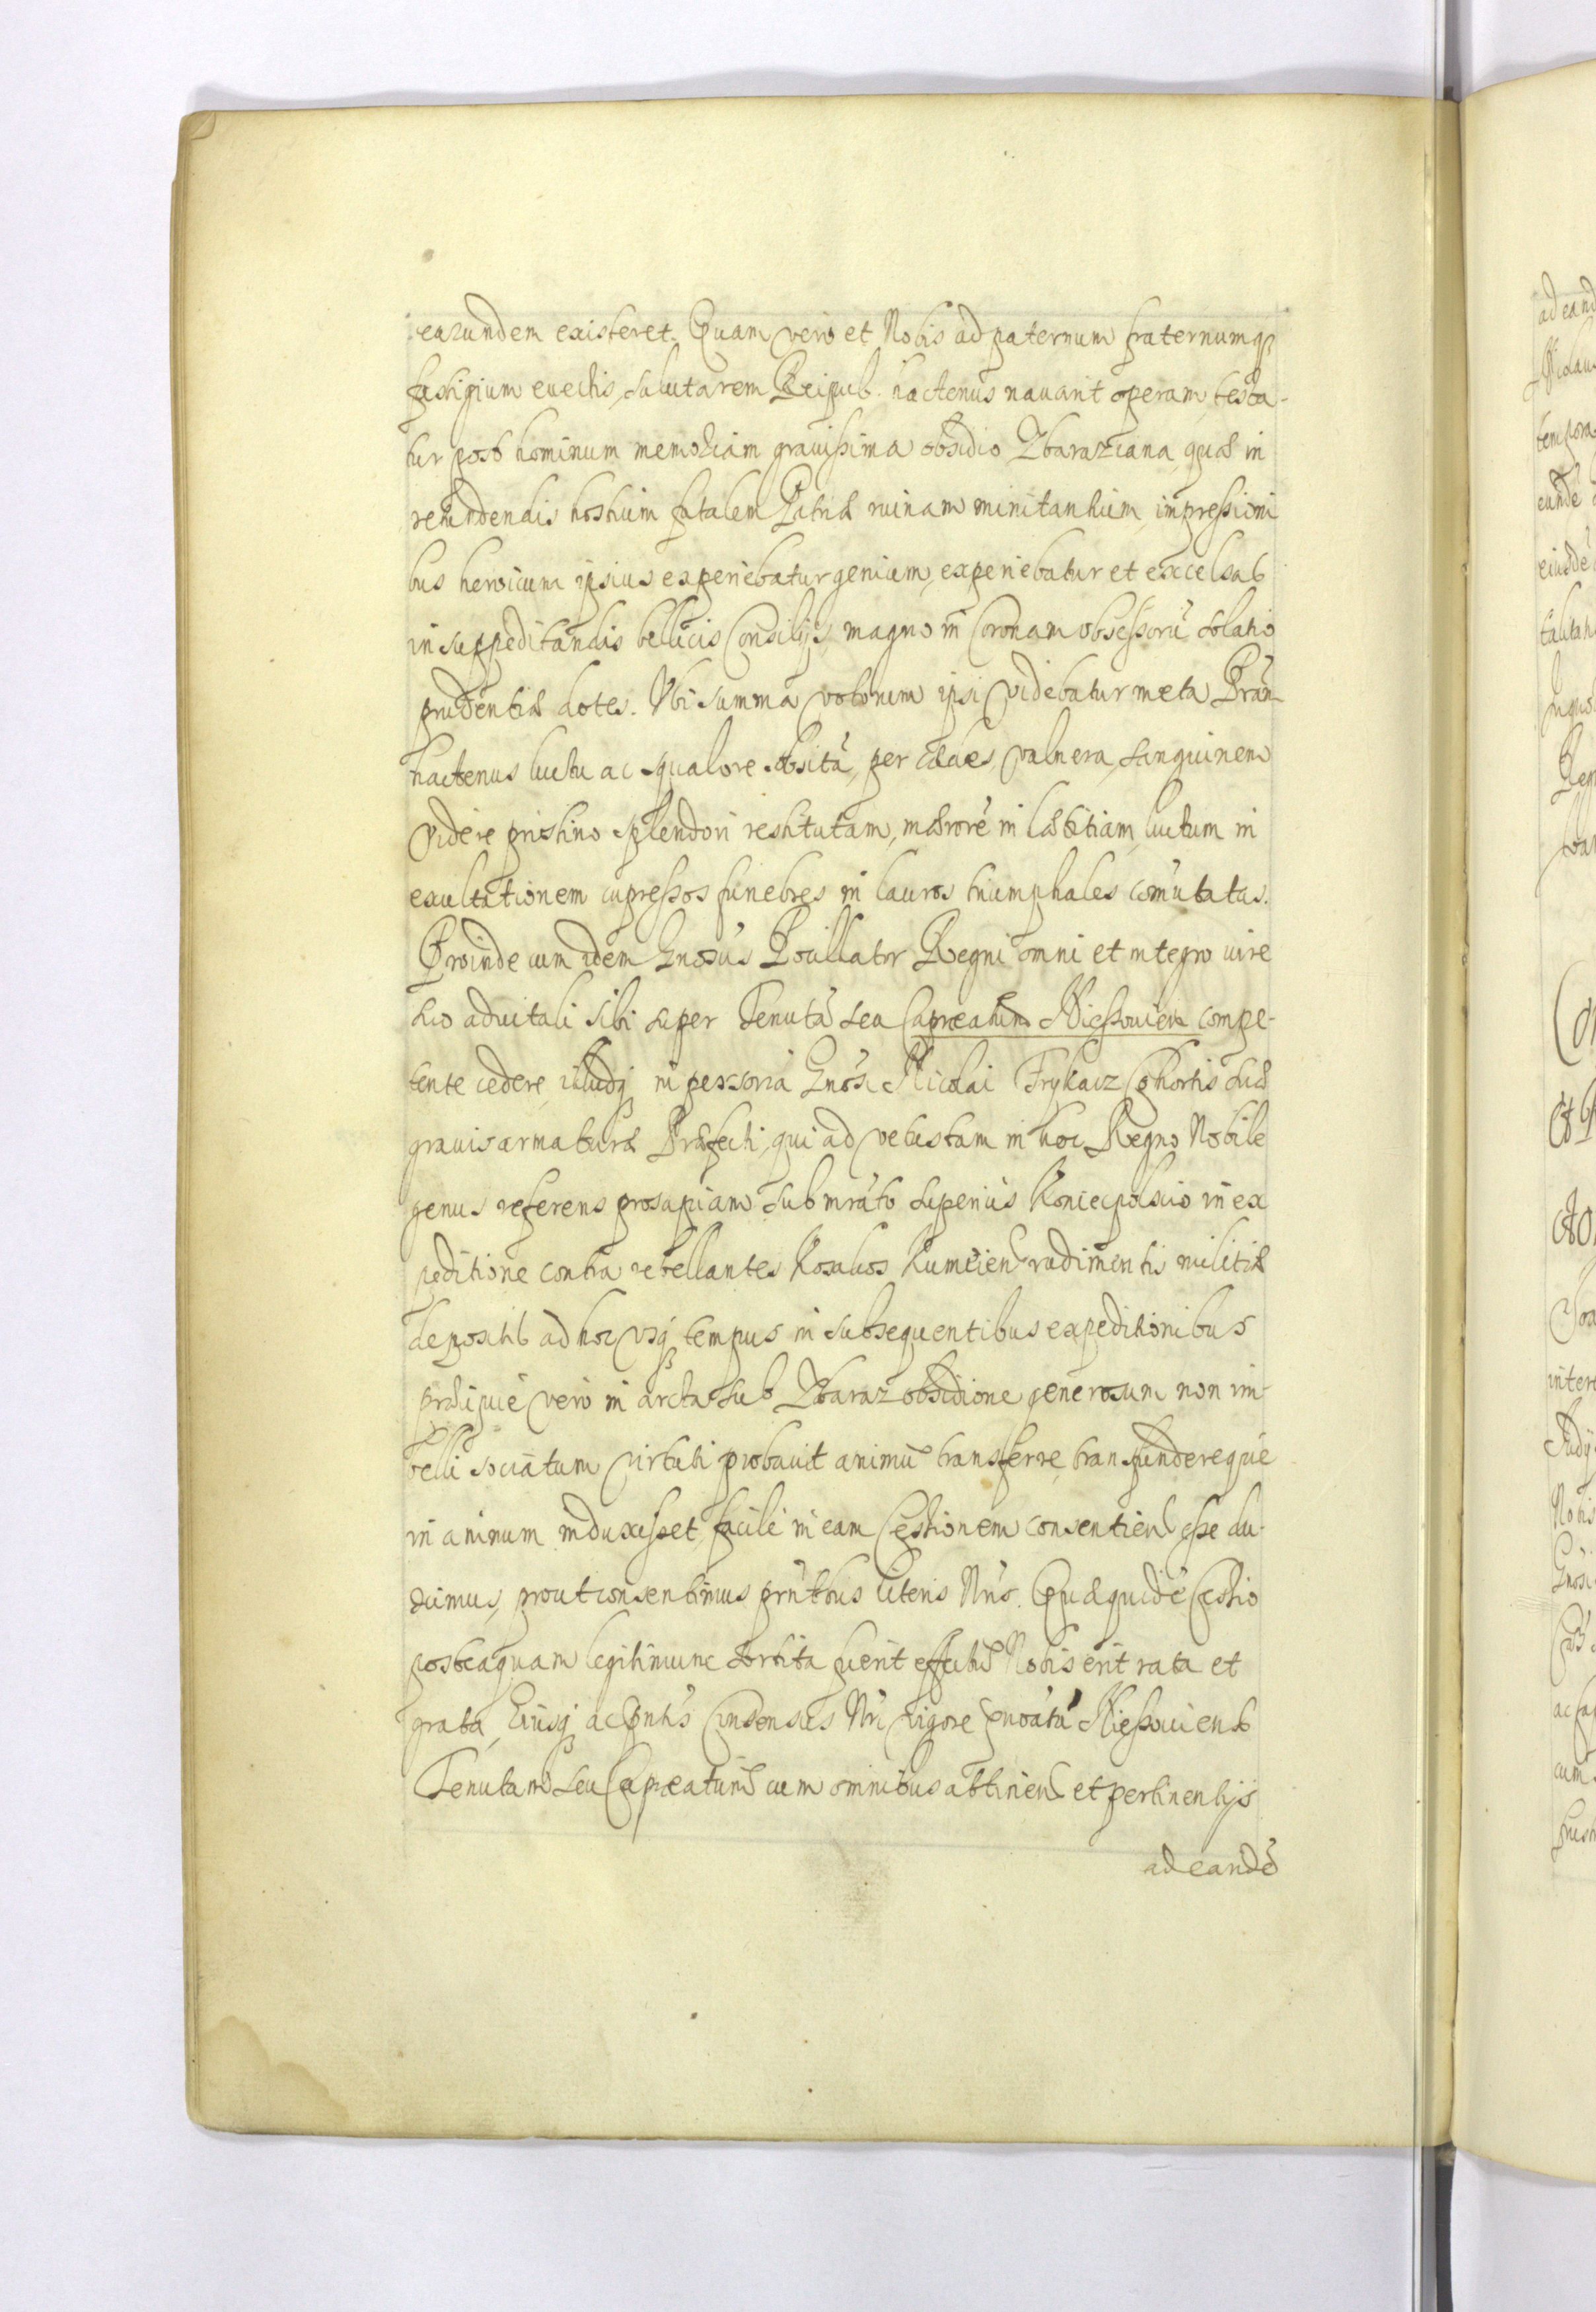 earundem existeret. Quam verò et Nobis ad paternum fraternumq3
fastigium euectis, salutarem Reipub. hactenus nauarit operam, testa-
tur post hominum memoriam grauissima obsidio Zbaraziana, quæ in
retundendis hostium fatalem Patriæ ruinam minitantium, impressioni
bus heroicum ipsius experiebatur genium, experiebatur et excelsas
in suppeditandis bellicis Consilijs, magno in Coronam obsessorū solatio
prudentiæ dotes. Vbi summa votorum ipsi videbatur meta Prām
hactenus luctu ac squalore obsitā, per cædes, vulnera, sanguinem
videre pristino splendori restitutam, mærorē in lætitiam, luctum in
exultationem cupressos funebres in lauros triumphales com̄utatas.
Proinde cum idem Gnosus Pocillator Regni omni et integro iure
suo aduitali sibi super Tenutā seu Capneatum Niessouien compe-
tente cedere, illudq3 in personā Gnosi Nicolai Frykacz Cohortis suæ
grauis armaturæ Præfecti, qui ad vetustam in hoc Regno Nobile
genus referens prosapiam sub mrāto superiùs Koniecpolscio in ex
peditione contra rebellantes Kosakos Kumeien rudimentis militiæ
depositis ad hoc vsq3 tempus in subsequentibus expeditionibus
præcipuè verò in arcta sub Zbaraz obsidione generosum non im-
belli sociatum virtuti probauit animū transferre, transfundereque
in animum induxisset, facilè in eam Cessionem consentien esse du-
ximus, prout consentimus prntibus literis Nris. Quæquidē Cessio
posteaquam legitimum sortita fuerit effectū Nobis erit rata et
grata, Eiusq3 ac pntis Consensus Nri vigore pnoātā Niessouiens
Tenutam seu Capneatum cum omnibus attinen et pertinentijs
ad eandē